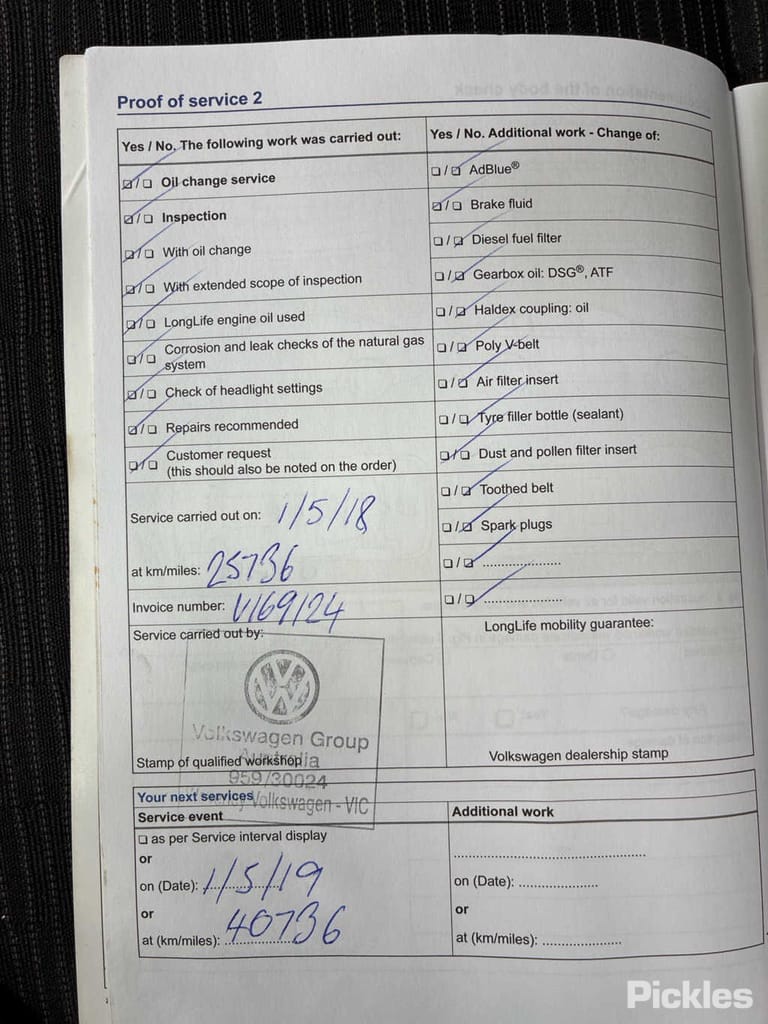 Proof of service 2
Yes / No. The following work was carried out:
☑/☐ Oil change service
☑/☐ Inspection
☑/☐ With oil change
☑/☐ With extended scope of inspection
☑/☐ LongLife engine oil used
☐/☐ Corrosion and leak checks of the natural gas
system
☑/☐ Check of headlight settings
☑/☐ Repairs recommended
☐/☐ Customer request
(this should also be noted on the order)
Service carried out on: 1/5/18
at km/miles: 25736
Invoice number: V169124
Service carried out by:
Volkswagen Group
Australia
959/30024
Volkswagen - VIC
Stamp of qualified workshop
Yes / No. Additional work - Change of:
☐/☑ AdBlue®
☑/☐ Brake fluid
☐/☑ Diesel fuel filter
☐/☑ Gearbox oil: DSG®, ATF
☐/☑ Haldex coupling: oil
☐/☑ Poly V-belt
☐/☑ Air filter insert
☐/☑ Tyre filler bottle (sealant)
☑/☐ Dust and pollen filter insert
☐/☑ Toothed belt
☐/☑ Spark plugs
☐/☑ .....................
☐/☑ .....................
LongLife mobility guarantee:
Volkswagen dealership stamp
Your next services
Service event
☐ as per Service interval display
or
on (Date): 1/5/19
or
at (km/miles): 40736
Additional work
..................................................
on (Date): .....................
or
at (km/miles): .....................
Pickles